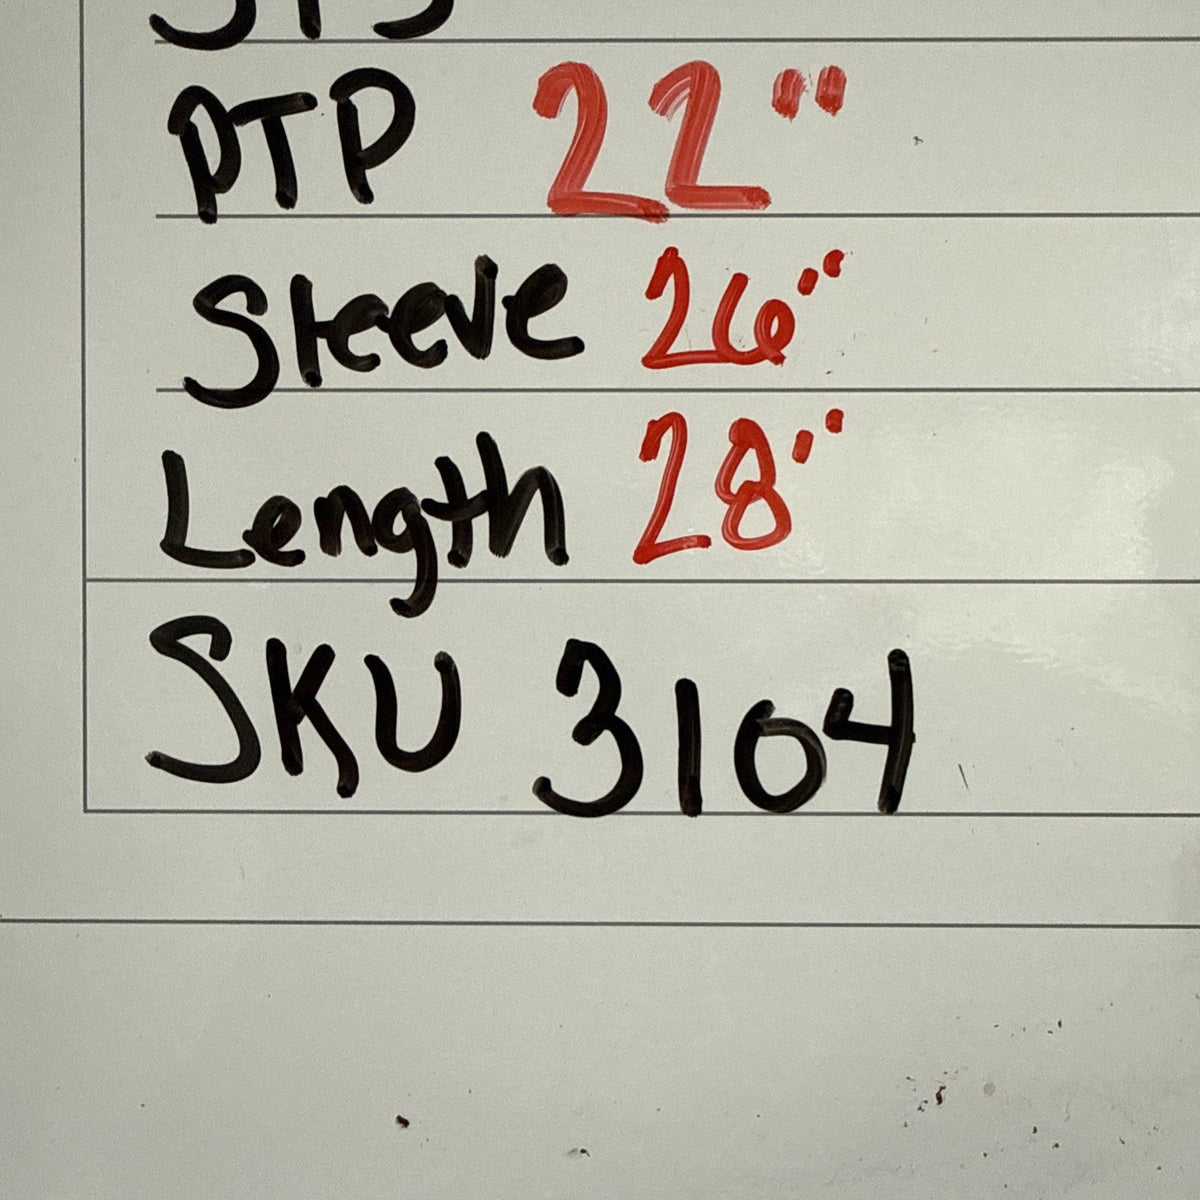 PTP 22"
Sleeve 26"
Length 28"
SKU 3104